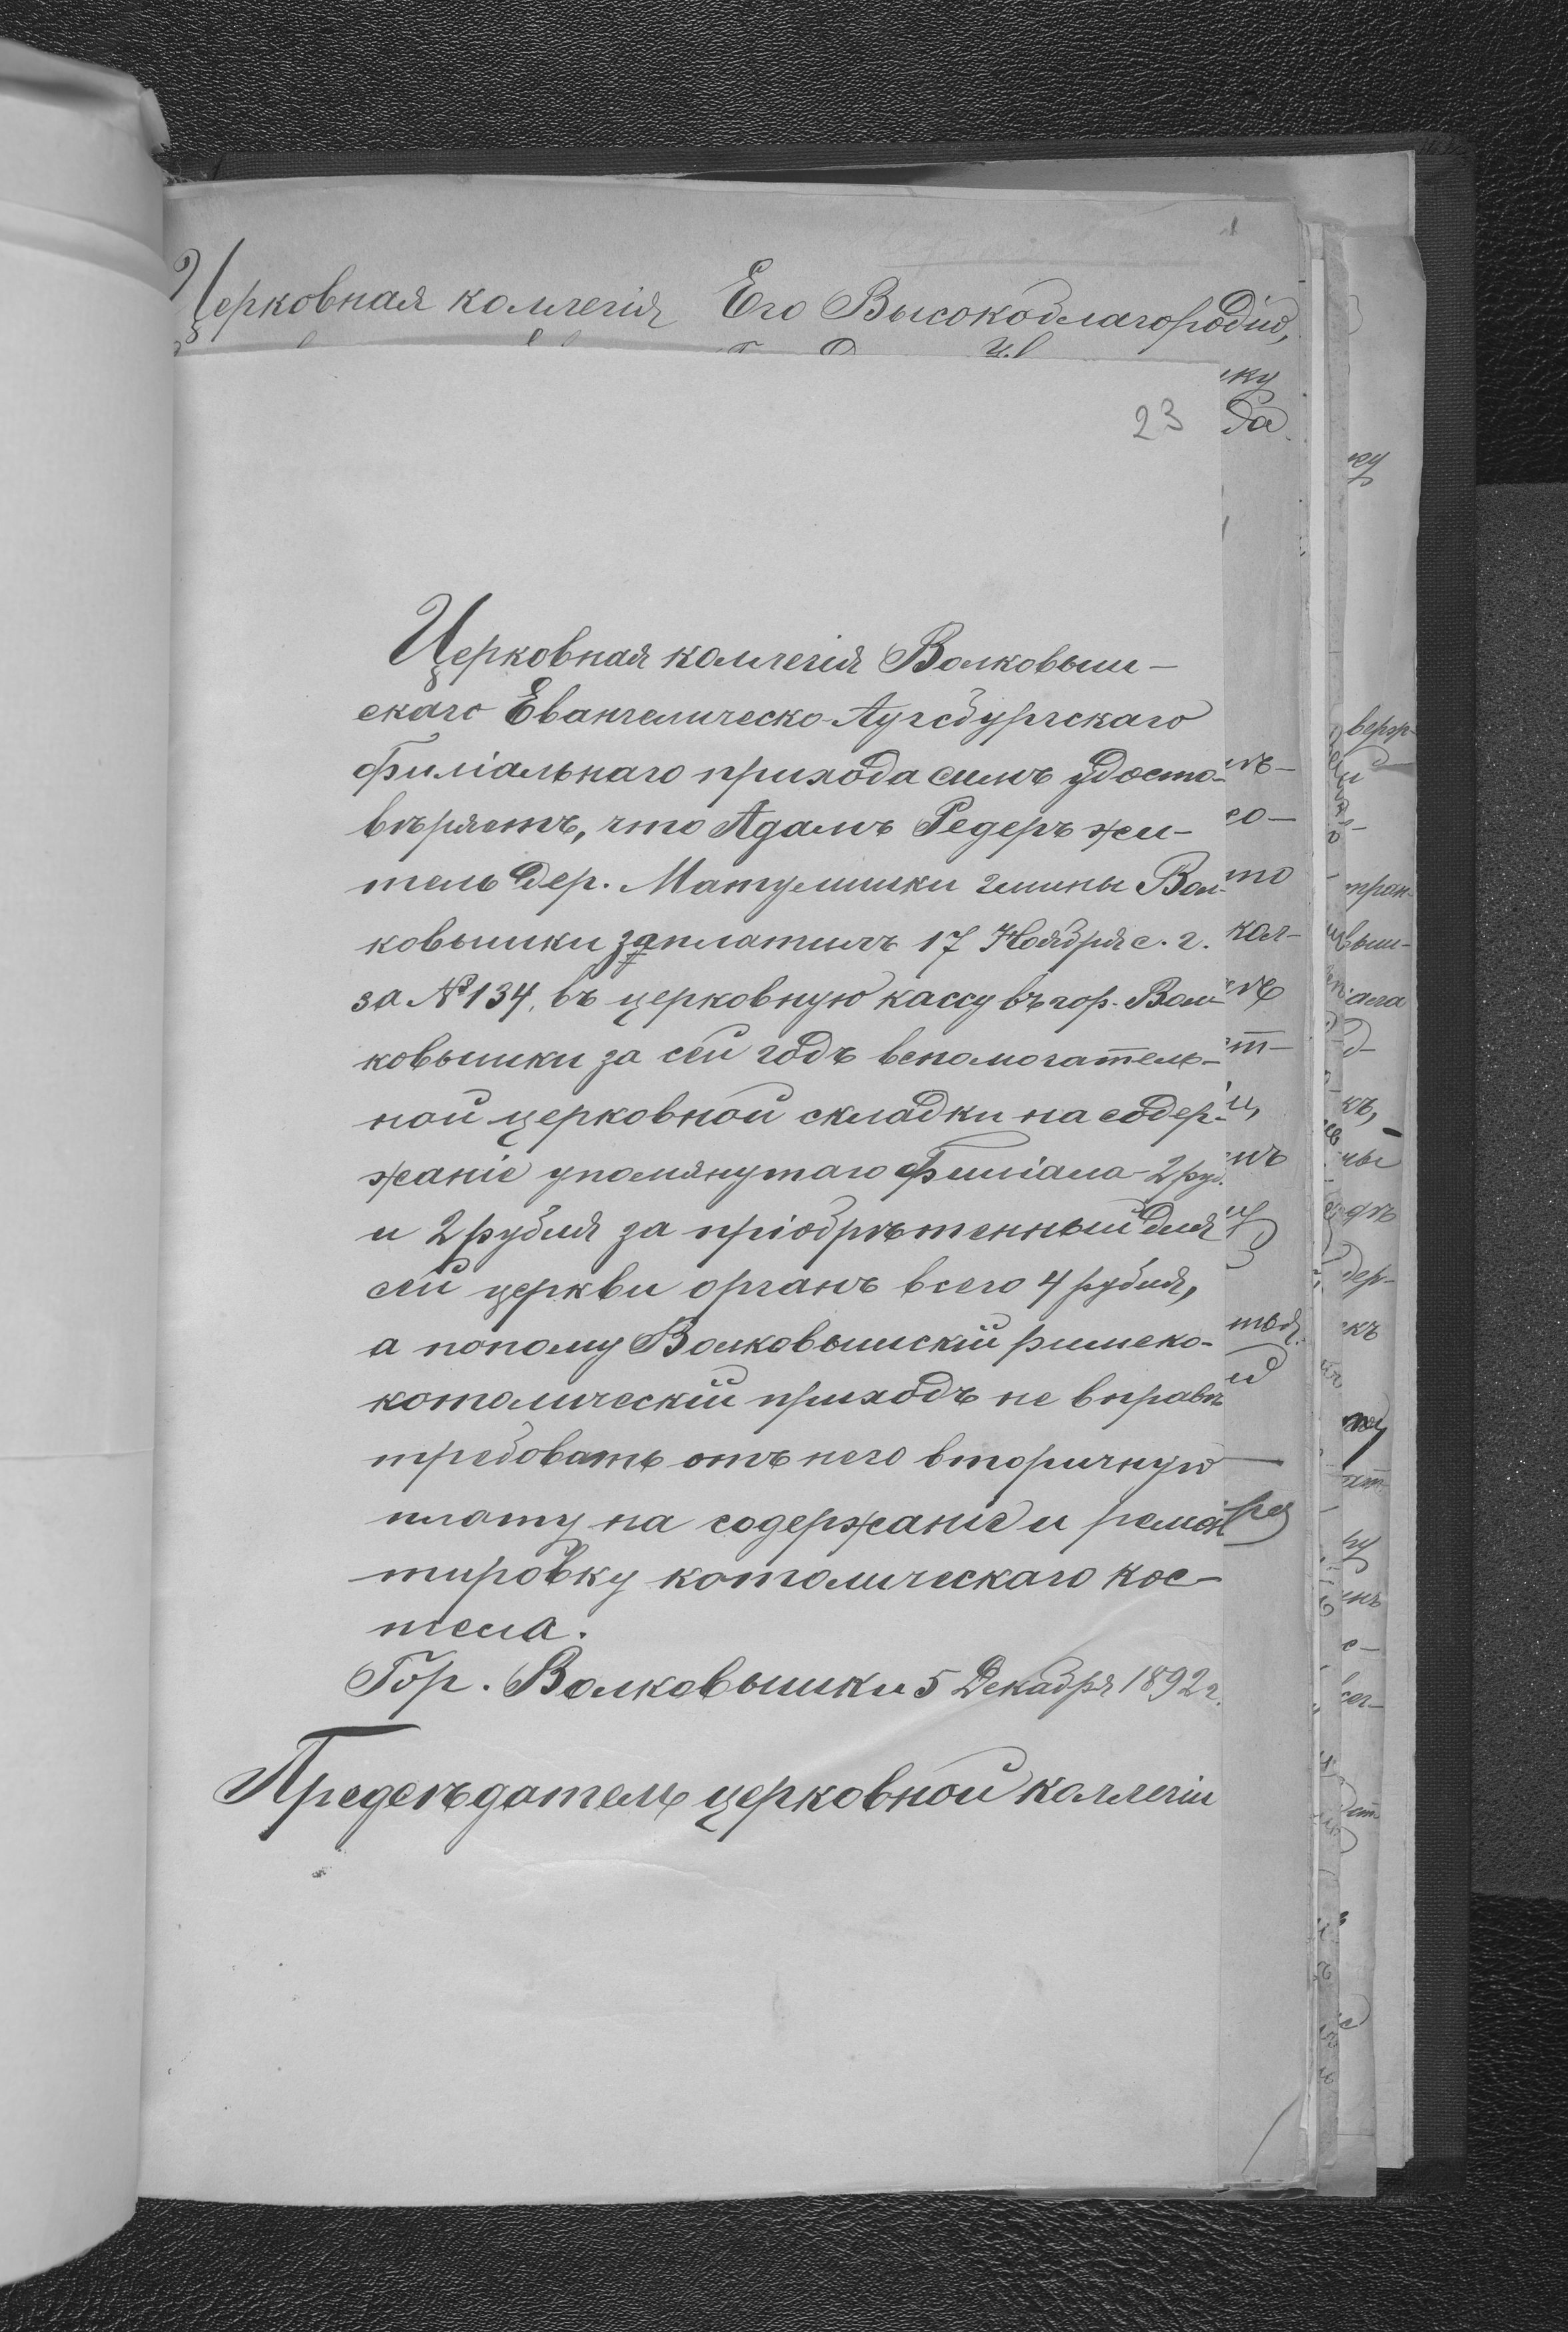 Церковная коллегія Его Высокоблагородію,
23
Церковная коллегія Волковыш-
скаго Евангелическо-Аугсбургскаго
Филіальнаго прихода симъ удосто-
вѣряетъ, что Адамъ Редеръ жи-
тель дер. Матулишки гмины Вол-
ковышки заплатилъ 17 Ноября с. г.
за № 134, въ церковную кассу въ гор. Вол-
ковышки за сей годъ вспомогатель-
ной церковной складки на содер-
жаніе упомянутаго Филіала 2 руб.
и 2 рубля за пріобрѣтенный для
сей церкви органъ всего 4 рубля,
а потому Волковышскій римско-
католическій приходъ не вправѣ
требовать отъ него вторичную
плату на содержаніе и ремон
тировку католическаго кос-
тела.
Гор. Волковышки 5 Декабря 1892 г.
Предсѣдатель церковной коллегіи